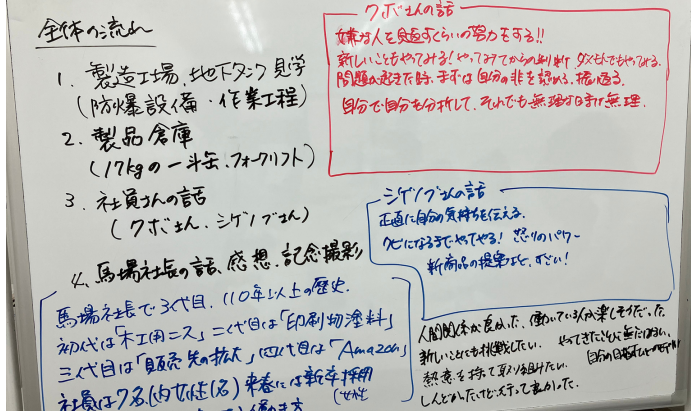 全体の流れ
1. 製造工場、地下タンク見学
(防爆設備・作業工程)
2. 製品倉庫
(17kgの一斗缶、フォークリフト)
3. 社員さんの話
(クボさん、シゲノブさん)
4. 馬場社長の話、感想、記念撮影
馬場社長で3代目、110年以上の歴史、
初代は「木工用ニス」二代目は「印刷物塗料」
三代目は「販売先の拡大」四代目は「Amazon」
社員は7名(内女性1名)来春には新卒採用
(女性
クボさんの話
嫌な人を見返すくらいの努力をする!!
新しいこともやってみる!やってみてからの判断 ダメもとでもやってみる。
問題が起きた時、まずは自分の非を認め、振り返る。
自分で自分を分析して、それでも無理な時は無理、
シゲノブさんの話
正直に自分の気持ちを伝える、
クビになるまでやってやる! 怒りのパワー
新商品の提案など、すごい!
人間関係が良かった、働いている人が楽しそうだった、
新しいことにも挑戦したい、 やってきたことに無駄はない、
熱意を持って取り組みたい、 自分の目指す
しんどかったけど行って良かった、